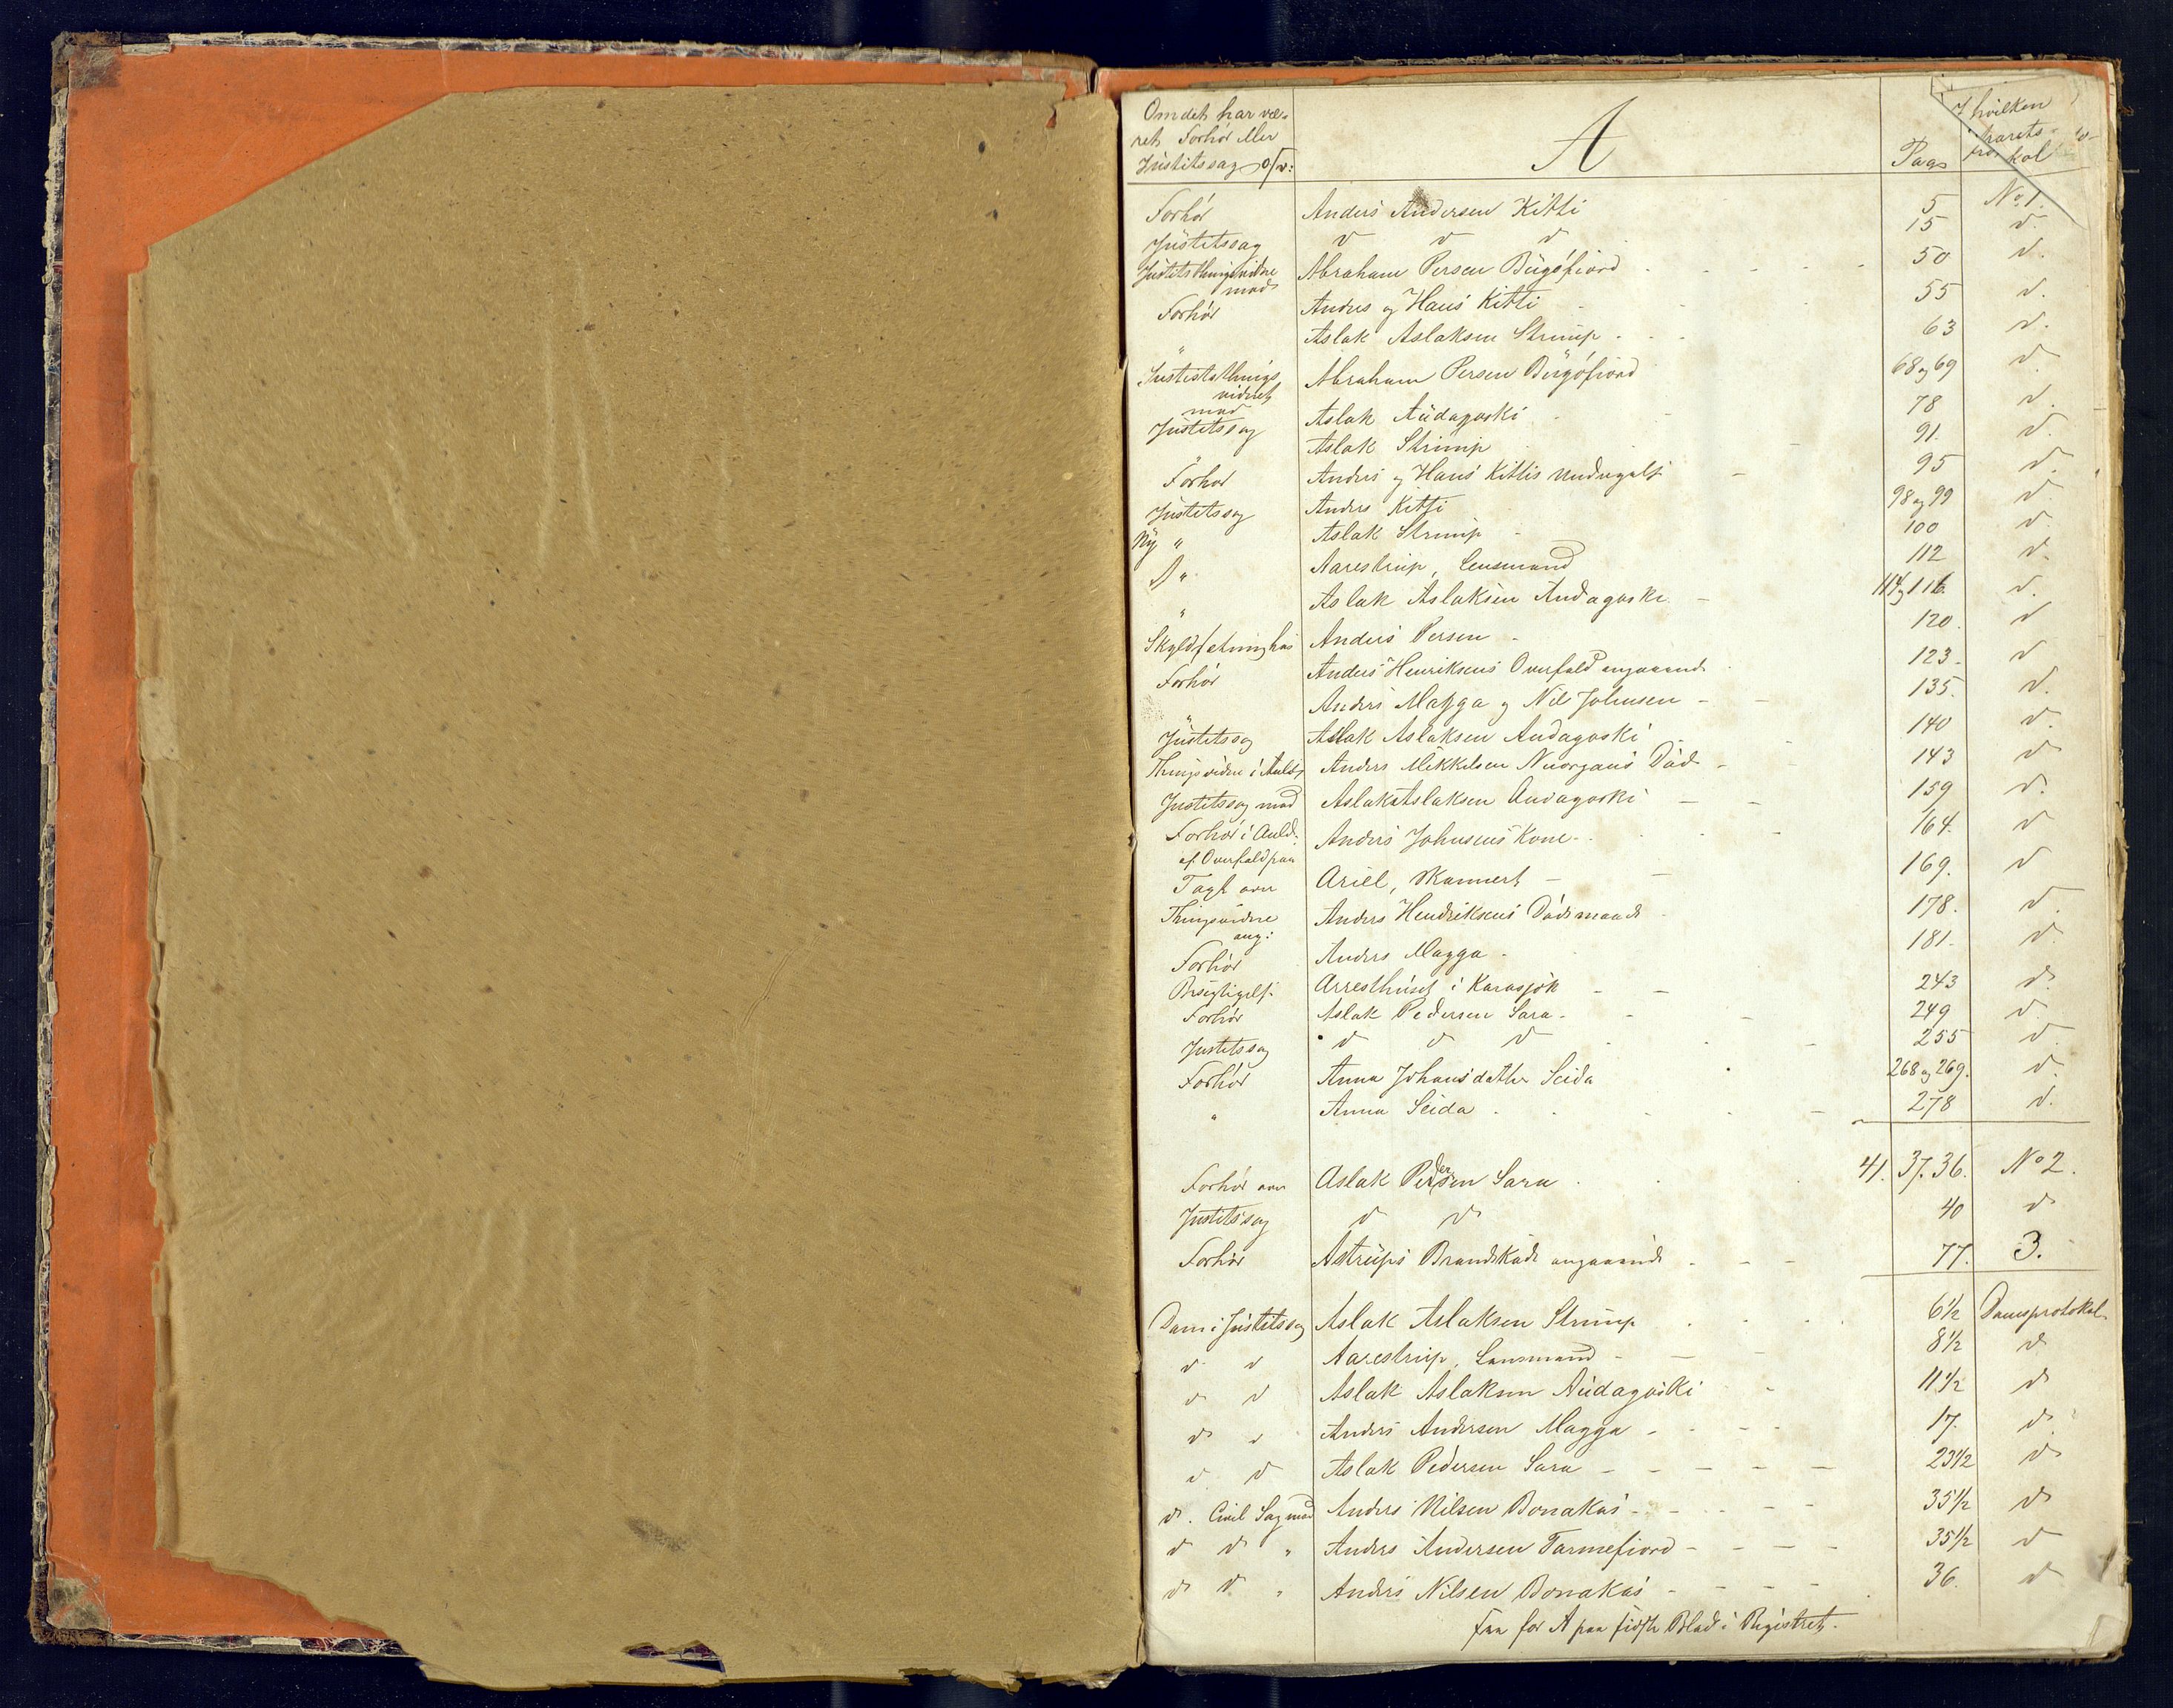 Om det har væ-
ret Forhør eller
Justitssag osv: A Paga I hvilken
No 1.
Forhør Anders Andersen Kitti 5
Justitssag d d d 15 d.
Justitsthingsvidne
mod Abraham Persen Bugøfiord 50 d.
Forhør Anders og Hans Kitti 55 d.
" Aslak Aslaksen Strimp 63 d.
Justitsthings
vidnet
mod Abraham Persen Bugøfiord 68 og 69 d
Aslak Audagoski 78 d.
Justitssag Aslak Strimp 91. d.
Forhør Anders og Hans Kittis 95 d.
Justitssag Anders Kitti 98 og 99 d.
Ny " Aslak Strimp 100 d.
D " Aarestrup, Lensmand 112 d.
" Aslak Aslaksen Audagoski 114 og 116 d.
Anders Persen 120. d
Forhør Anders Henriksens Overfald angaaende 123. d
" Anders Magga og Nils Johnsen 135. d.
Justitssag Aslak Aslaksen Audagoski 140 d.
Thingsvidne i Anlds Anders Mikkelsen Nuorgans Død 143 d
Justitssag mod Aslak Aslaksen Audagoski 159 d.
Forhør i Anld:
af Overfald paa Anders Johnsens Kone 164. d
Tagt over Ariel, Skonnert 169. d
Thingsvidne
ang: Anders Hendriksens Dødsmaade 178. d.
Forhør Anders Magga 181. d.
Besigtigelse Arresthuset i Karasjok 243 d.
Forhør Aslak Pedersen Sara 249 d.
Justitssag d d d 255 d.
Forhør Anna Johansdatter Seida 268 og 269. d.
" Anna Seida 278 d.
Forhør over Aslak Pedersen Sara 41. 37. 36. No 2.
Justitssag d d 40 d
Forhør Astrups Brandskade angaaende 77. 3.
Dom i Justitssag Aslak Aslaksen Strimp 6½ Domsprotokol
d d Aarestrup, Lensmand 8½ d
d d Aslak Aslaksen Audagoski 11½ d
d d Anders Andersen Magga 17. d.
d d Aslak Pedersen Sara 23½ d
d. Civil Sag mod Anders Nilsen Bonakas 35½ d
d d " Anders Andersen Tarmefiord 35½ d
d d " Anders Nilsen Bonakas 36. d
for A paa sidste Blad i Registret.